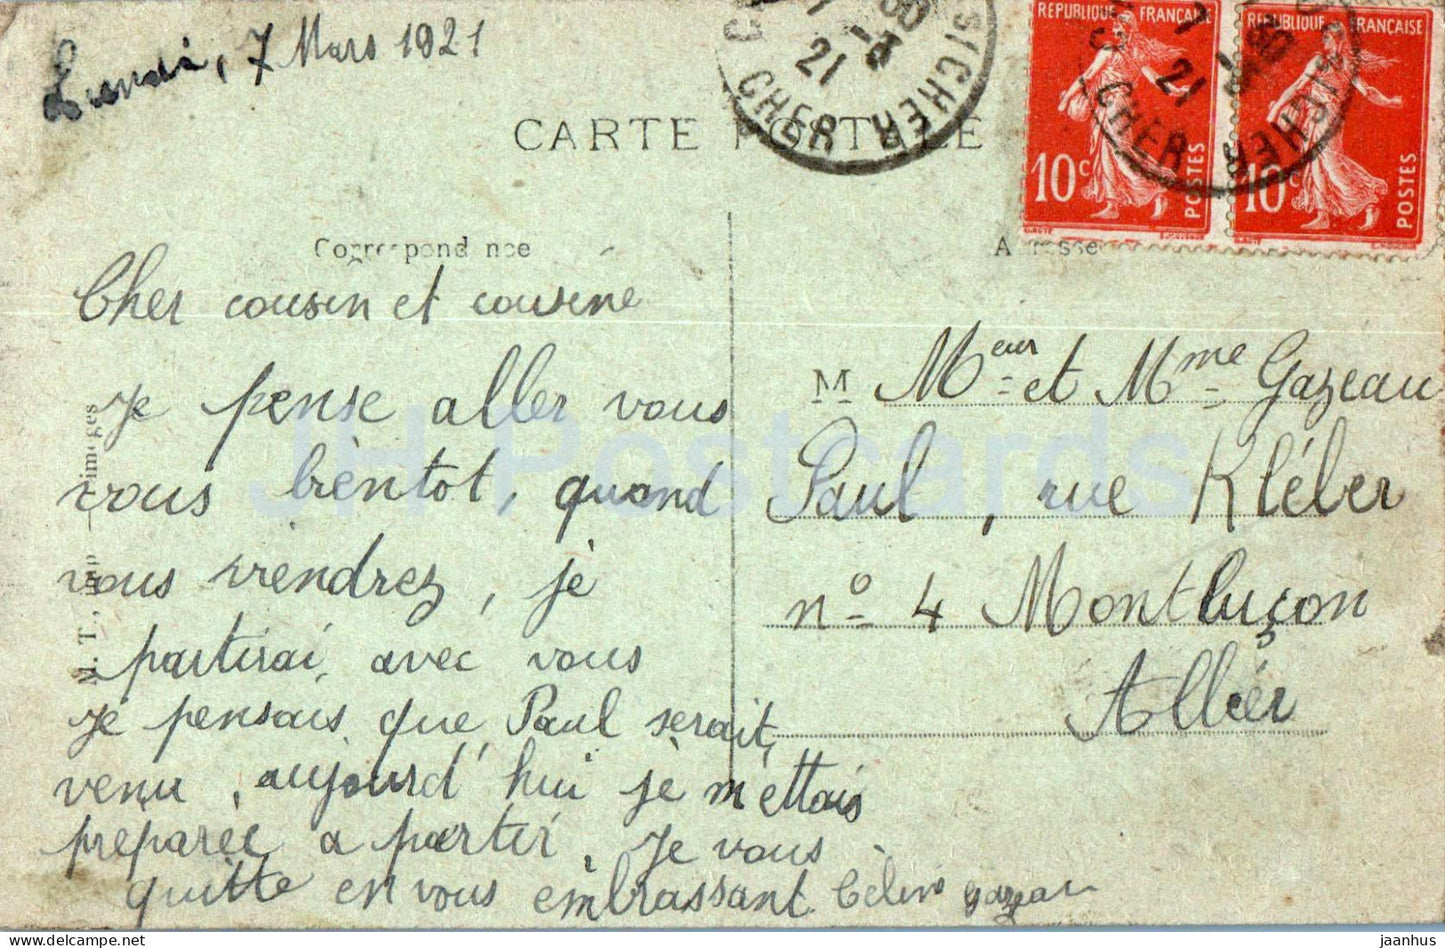 Lundi, 7 Mars 1921
CARTE POSTALE
7
21
CHER
CHER
REPUBLIQUE FRANÇAISE
10c POSTES
REPUBLIQUE FRANÇAISE
10c POSTES
Correspondance
Adresse
Cher cousin et cousine
Je pense aller vous
vous bientot, quand
vous viendrez, je
partirai avec vous
Je pensais que Paul serait
venu, aujourd'hui je m'ettais
préparée a partir, Je vous
quitte en vous embrassant.
Gazeau
M Meur et Mme Gazeau
Paul, rue Kléber
no 4 Montluçon
Allier
M. T., Imp. Limoges
JH Postcards
jaanhus delcampe.net